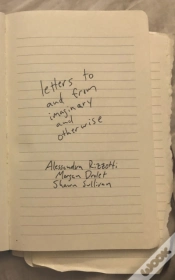 letters to
and from
imaginary
and
otherwise
Alessandra Rizzotti
Morgan
Shawn Sullivan
wook